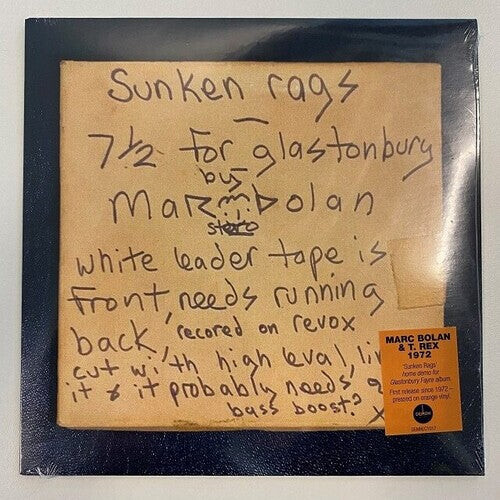 Sunken rags
—
7½ for glastonbury
by
Marc Bolan
stereo
white leader tape is
front, needs running
back, recored on revox
cut with high leval, lim
it & it probably needs a
bass boost? x
MARC BOLAN
& T. REX
1972
'Sunken Rags'
home demo for
Glastonbury Fayre album.
First release since 1972 –
pressed on orange vinyl.
DEMON
DEMREC1017